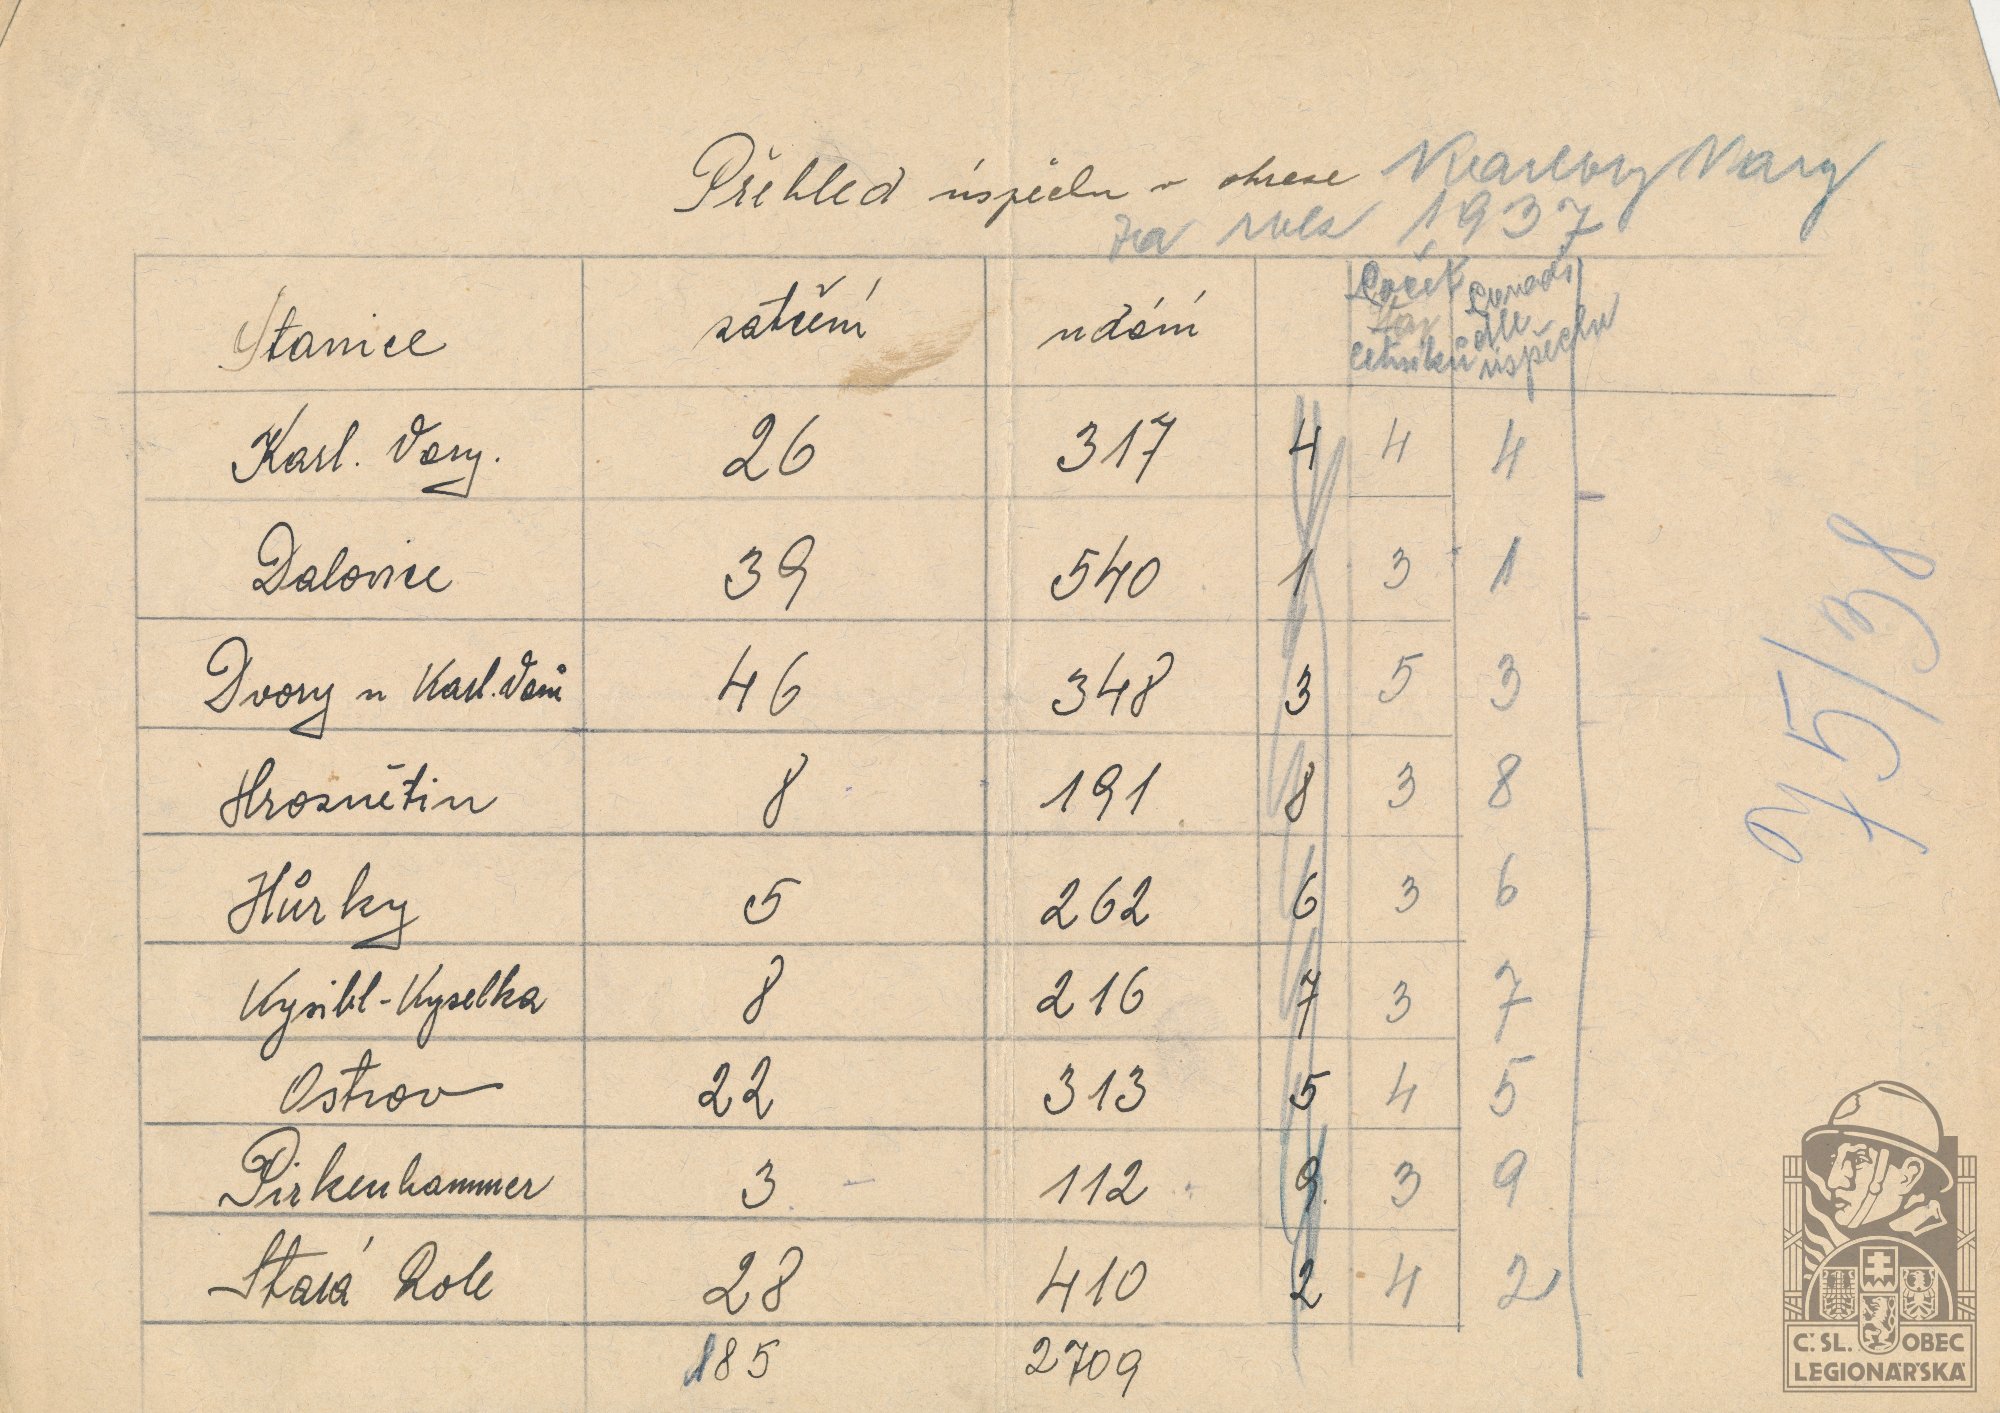 Přehled úspěchu v okrese Karlovy Vary
za rok 1937
Stanice zatčení udání Počet četníků Pořadí dle úspěchu
Karl. Vary. 26 317 4 4 4
Dalovice 39 540 1 3 1
Dvory u Karl. Varů 46 348 3 5 3
Hroznětín 8 191 8 3 8
Hůrky 5 262 6 3 6
Kysibl-Kyselka 8 216 7 3 7
Ostrov 22 313 5 4 5
Pirkenhammer 3 112 9 3 9
Stará Role 28 410 2 4 2
185 2709
75/38
Č. SL. OBEC
LEGIONÁŘSKÁ